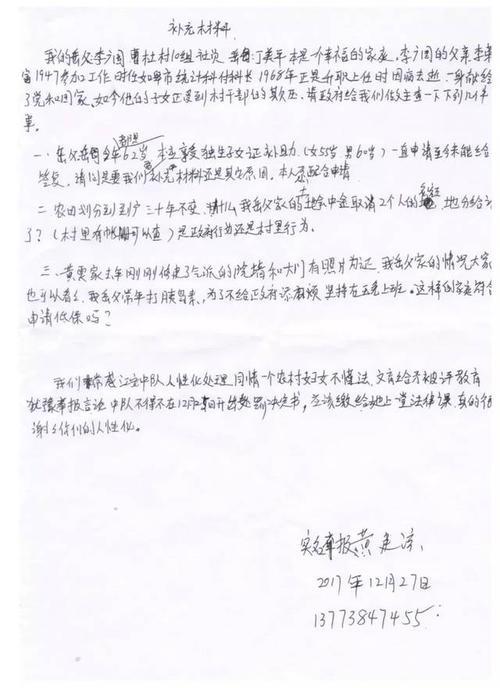 补充材料
我的岳父李方国 曹杜村10组社员 岳母:丁美华 本是一个幸福的家庭，李方国的父亲李
富1947参加工作 时任如皋市统计科付科长 1968年正是升职上任时因病去逝 一身献给
了党和国家，如今他的子女正受到村干部的欺压，请政府给我们做主查一下下列几件
事。
一、岳父岳母今年62岁 本应享受独生子女证补助力（女55岁 男60岁）一直申请至今未能给
答复，请问是要我们补充材料还是其它原因，本人愿配合申请
二 农田划分到户三十年不变，为什么我岳父家的土地余中金取消2个人的 地分给
了？（村里有帐册可以查）是政府行为还是村里行为。
三、黄 家去年刚刚修建了气派的院墙和大门有照片为证 我岳父家的情况大家
也可以看看，我岳父常年打胰岛素，为了不给政府添麻烦 坚持在五 上班。这样的家庭符合
申请低保吗？
我们 感 江安中队人性化处理，同情一个农村妇女不懂法，
犹 举报言论 中队不得不在12月 日开出处罚决定书，应该 给她上一堂法律课，真的很
谢谢你们的人性化。
实名举报黄
2017年12月27日
13773847455